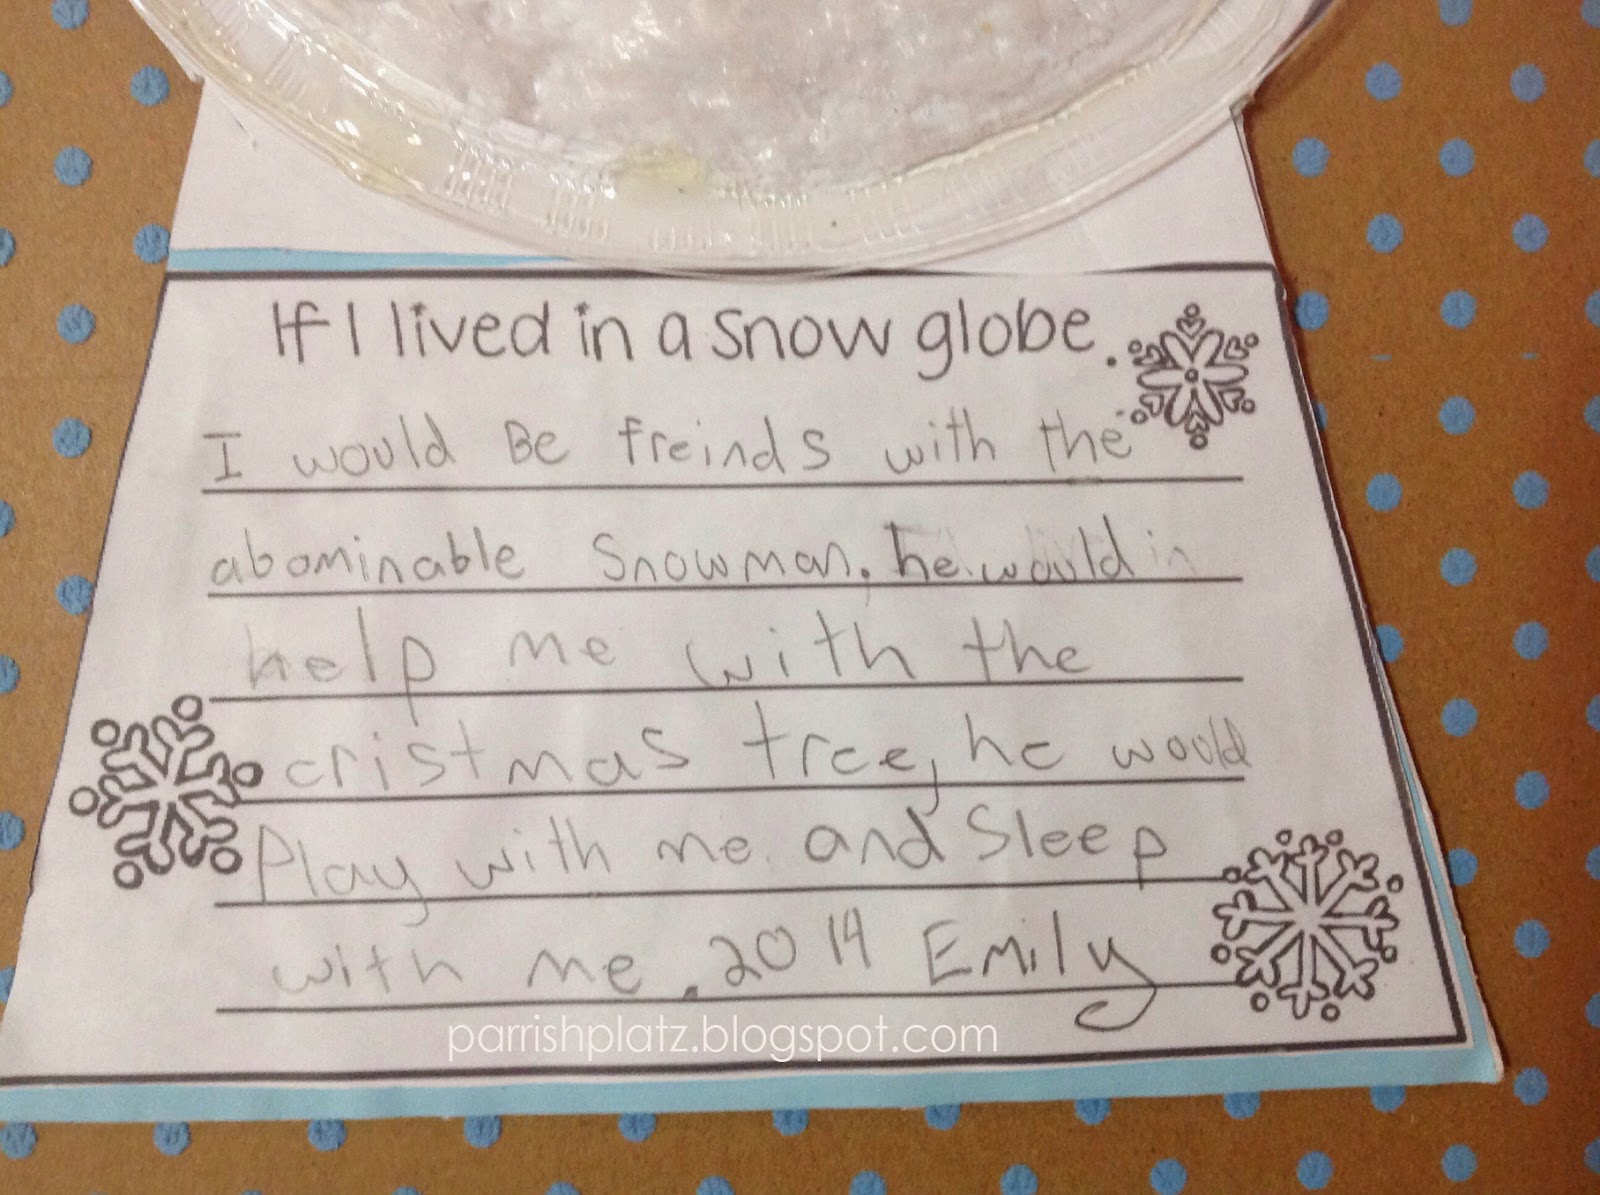 If I lived in a snow globe.
I would Be freinds with the
abominable Snowman. he would in
help me with the
cristmas tree, he would
Play with me and Sleep
with me. 2014 Emily
parrishplatz.blogspot.com